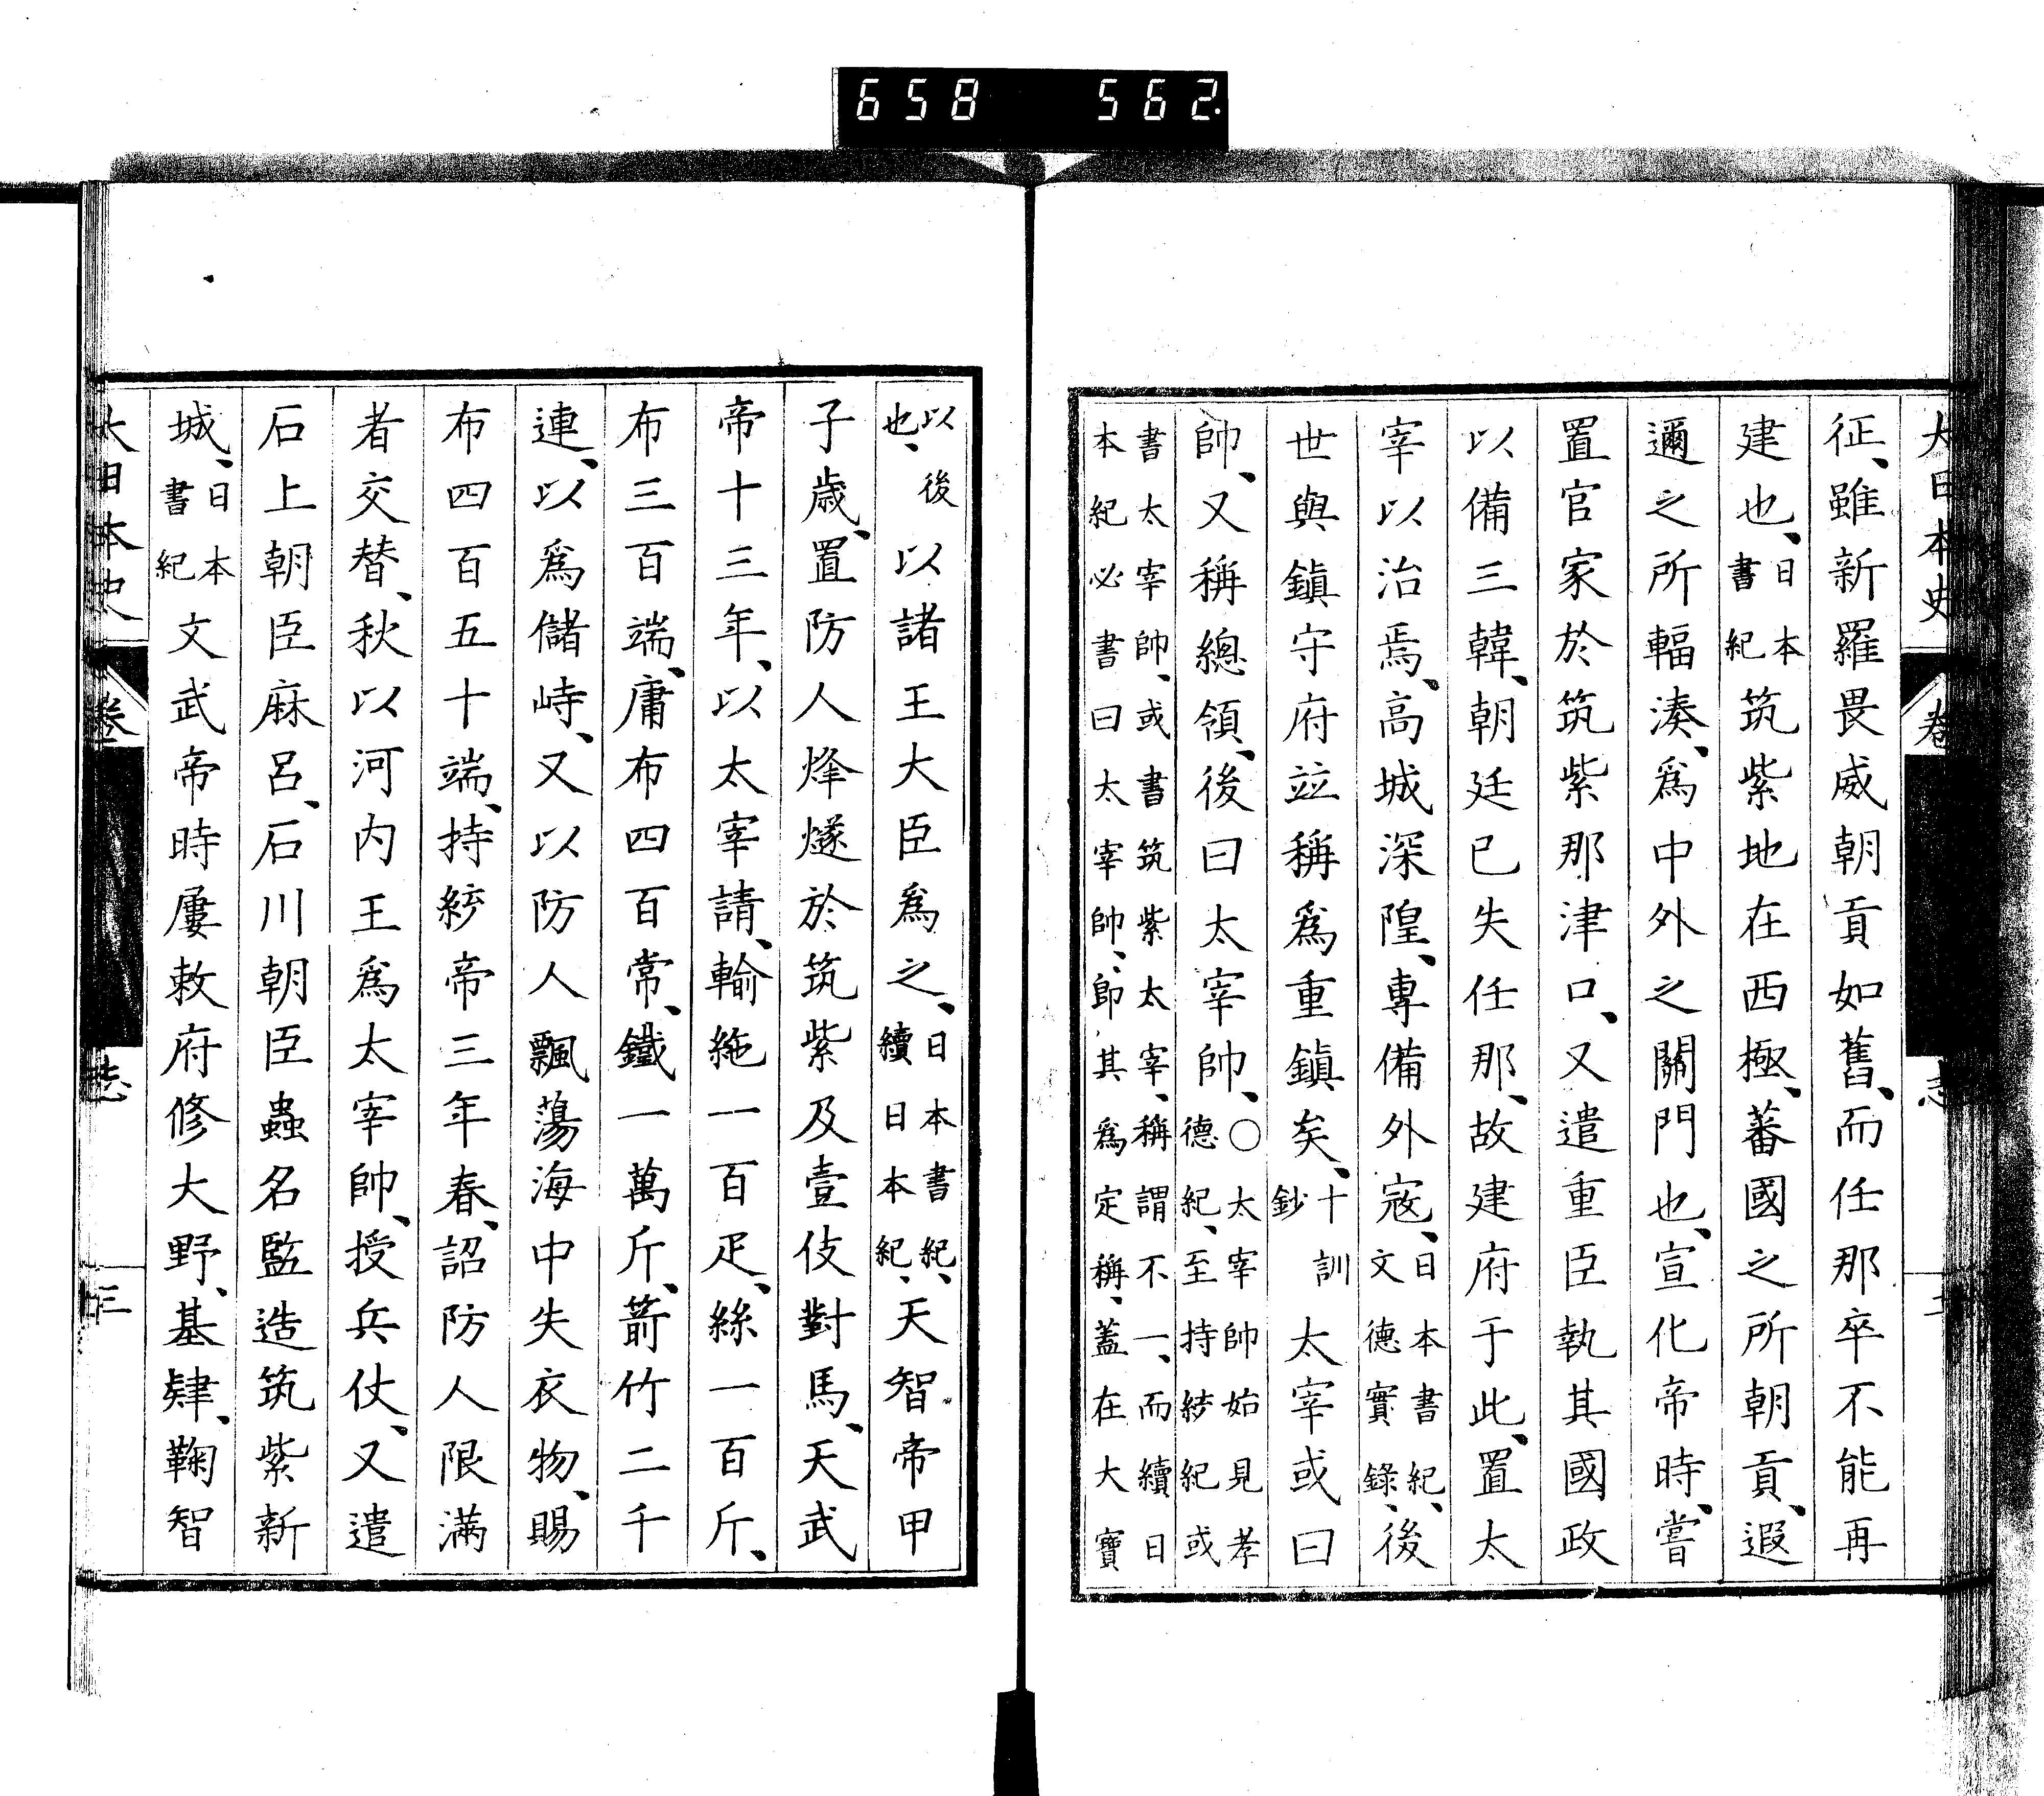 658 562
大日本史 卷 志
征、雖新羅畏威朝貢如舊、而任那卒不能再
建也、日本書紀筑紫地在西極、蕃國之所朝貢、遐
邇之所輻湊、爲中外之關門也、宣化帝時、嘗
置官家於筑紫那津口、又遣重臣執其國政
以備三韓、朝廷已失任那、故建府于此、置太
宰以治焉、高城深隍、專備外寇、日本書紀、文德實錄、後
世與鎮守府竝稱爲重鎮矣、十訓鈔太宰或曰
帥、又稱總領、後曰太宰帥、○太宰帥始見孝德紀、至持統紀或
書太宰帥、或書筑紫太宰、稱謂不一、而續日本紀必書曰太宰帥、卽其爲定稱、蓋在大寶
以後也、以諸王大臣爲之、日本書紀、續日本紀、天智帝甲
子歲、置防人烽燧於筑紫及壹伎對馬、天武
帝十三年、以太宰請、輸絁一百疋、絲一百斤、
布三百端、庸布四百常、鐵一萬斤、箭竹二千
連、以爲儲峙、又以防人飄蕩海中失衣物、賜
布四百五十端、持統帝三年春、詔防人限滿
者交替、秋以河内王爲太宰帥、授兵仗、又遣
石上朝臣麻呂、石川朝臣蟲名監造筑紫新
城、日本書紀文武帝時屢敕府修大野、基肄、鞠智
大日本史 卷 志 三